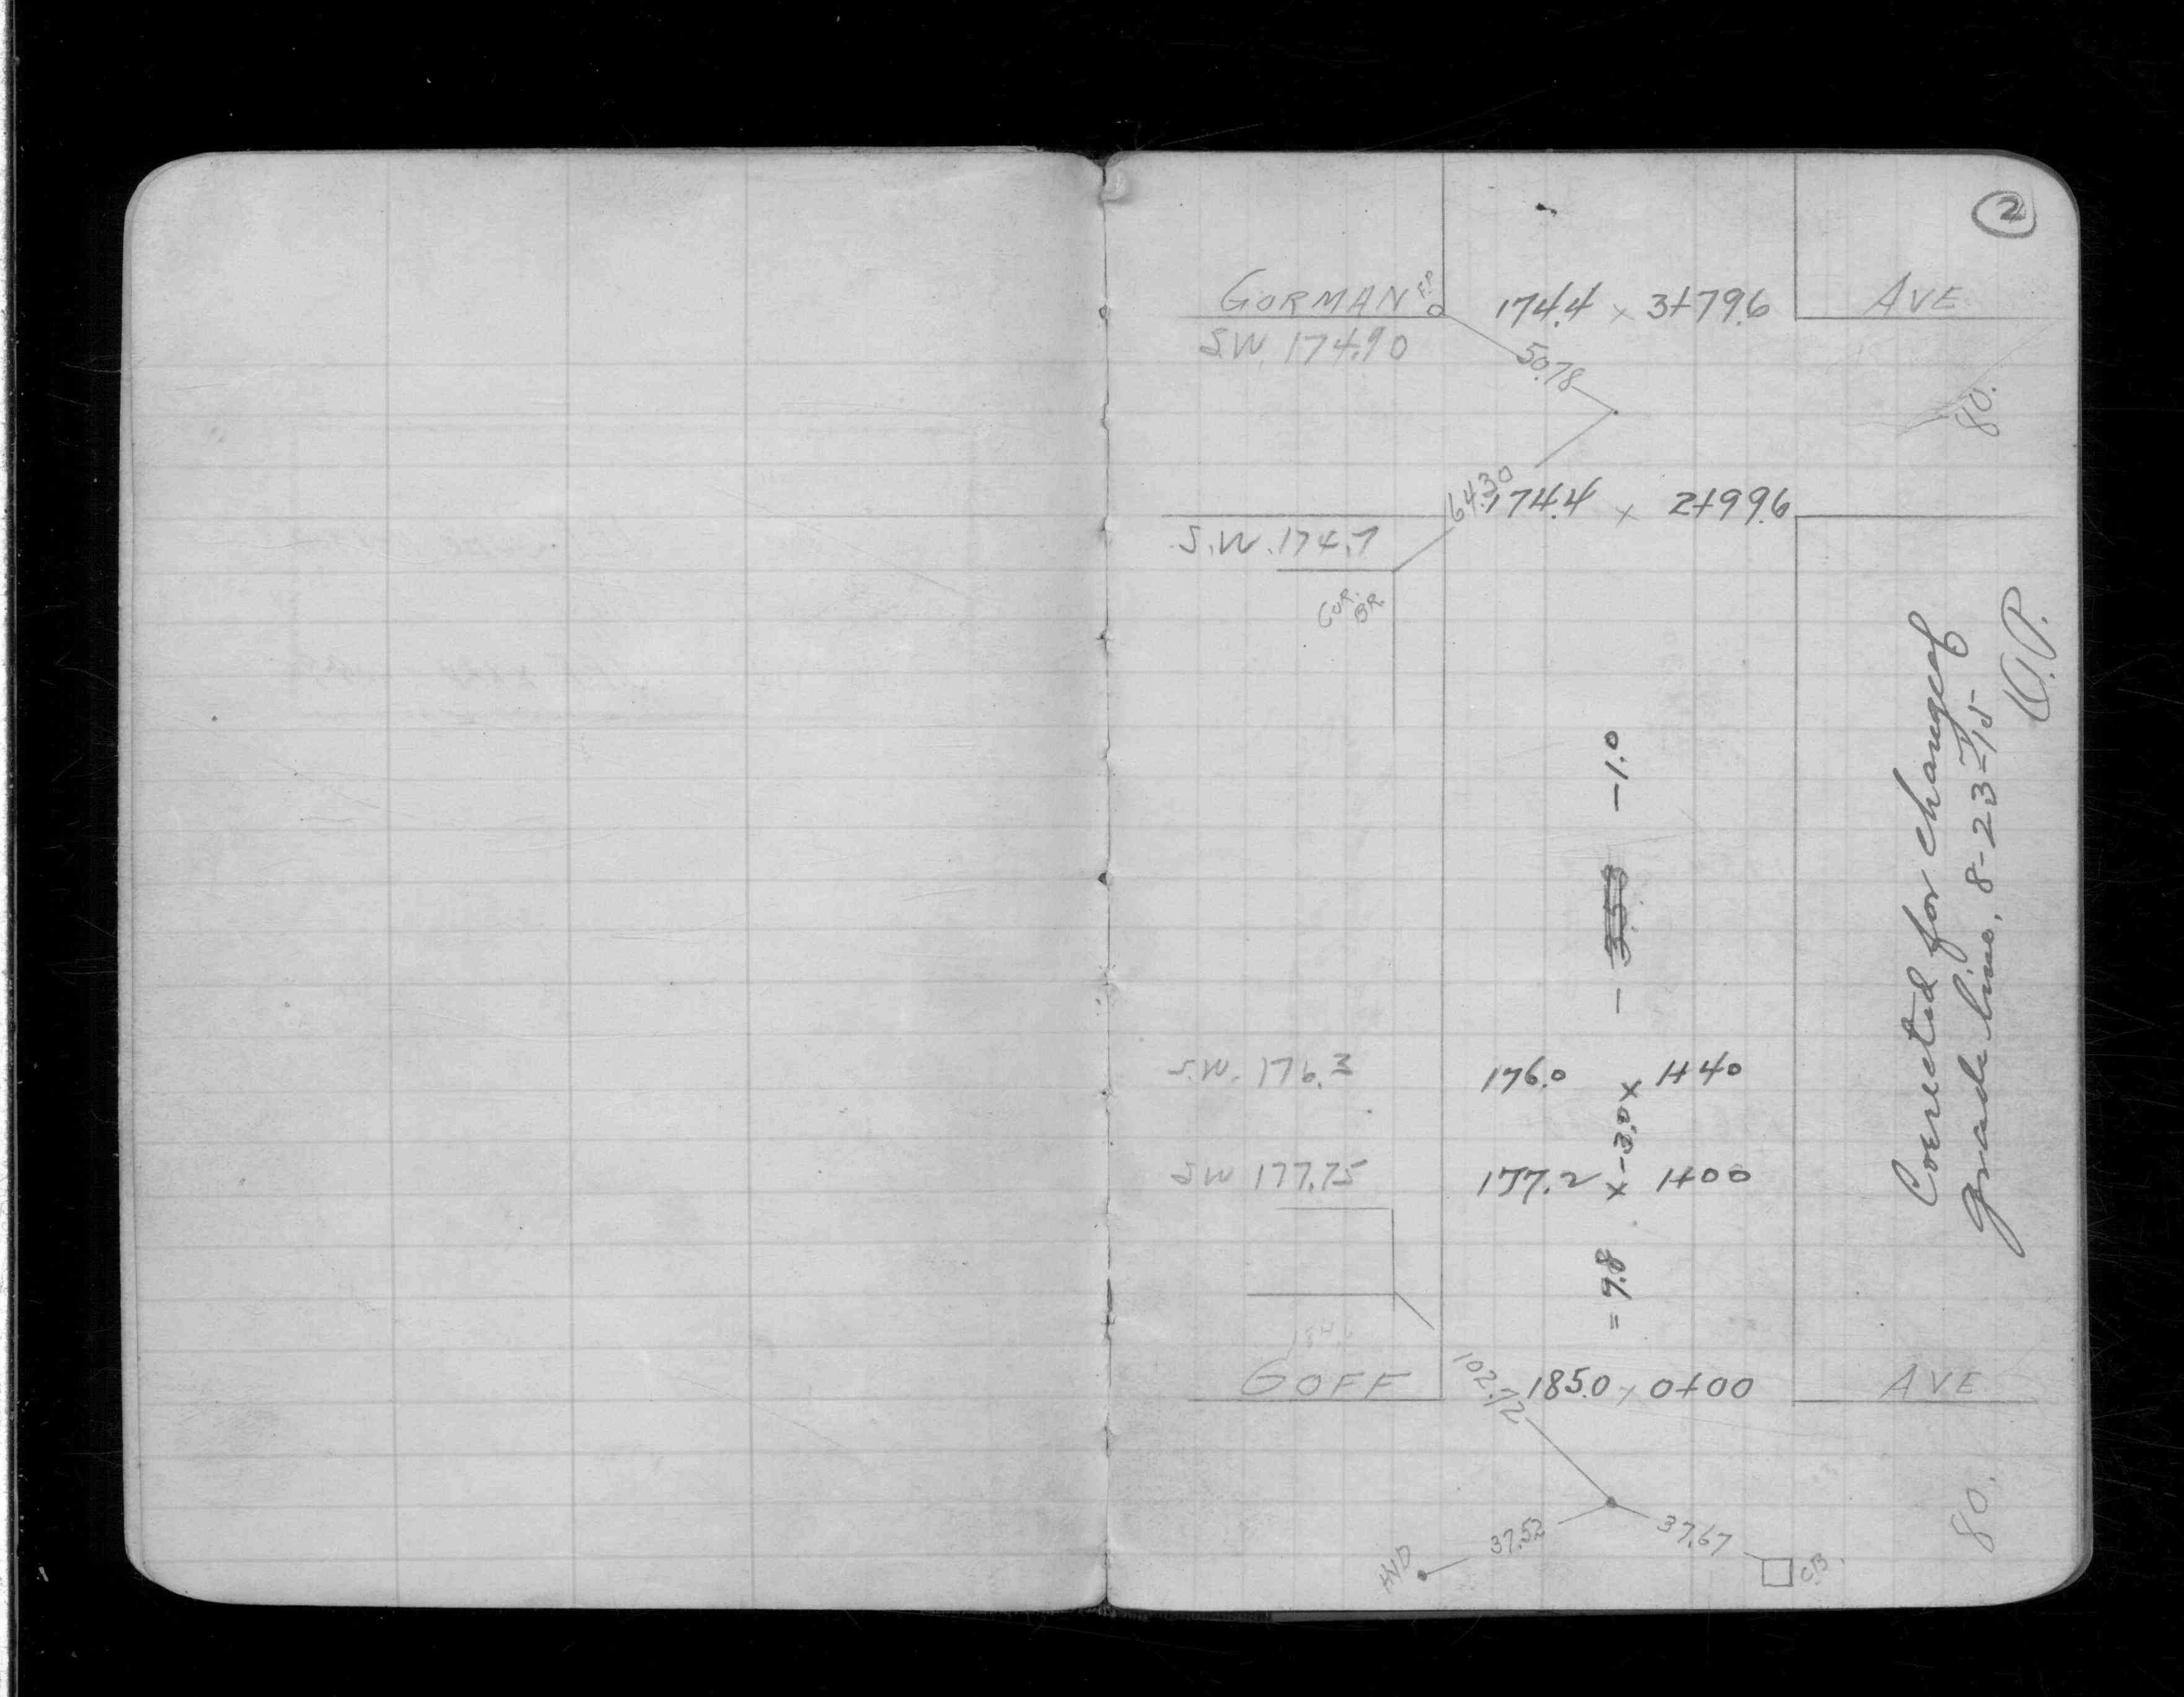 2
GORMAN F.P. 174.4 x 3+79.6 AVE
S.W. 174.90
50.78
80.
64.30 174.4 x 2+99.6
S.W. 174.7
COR. BR.
-1.0
- 3.53
S.W. 176.3 176.0 x 1+40
-3.0
SW 177.75 177.2 x 1+00
= 9.8
GOFF 185.0 x 0+00 AVE
102.72
37.52
37.67
HYD
C.B.
80.
Corrected for changed
grade line, 8-23-15